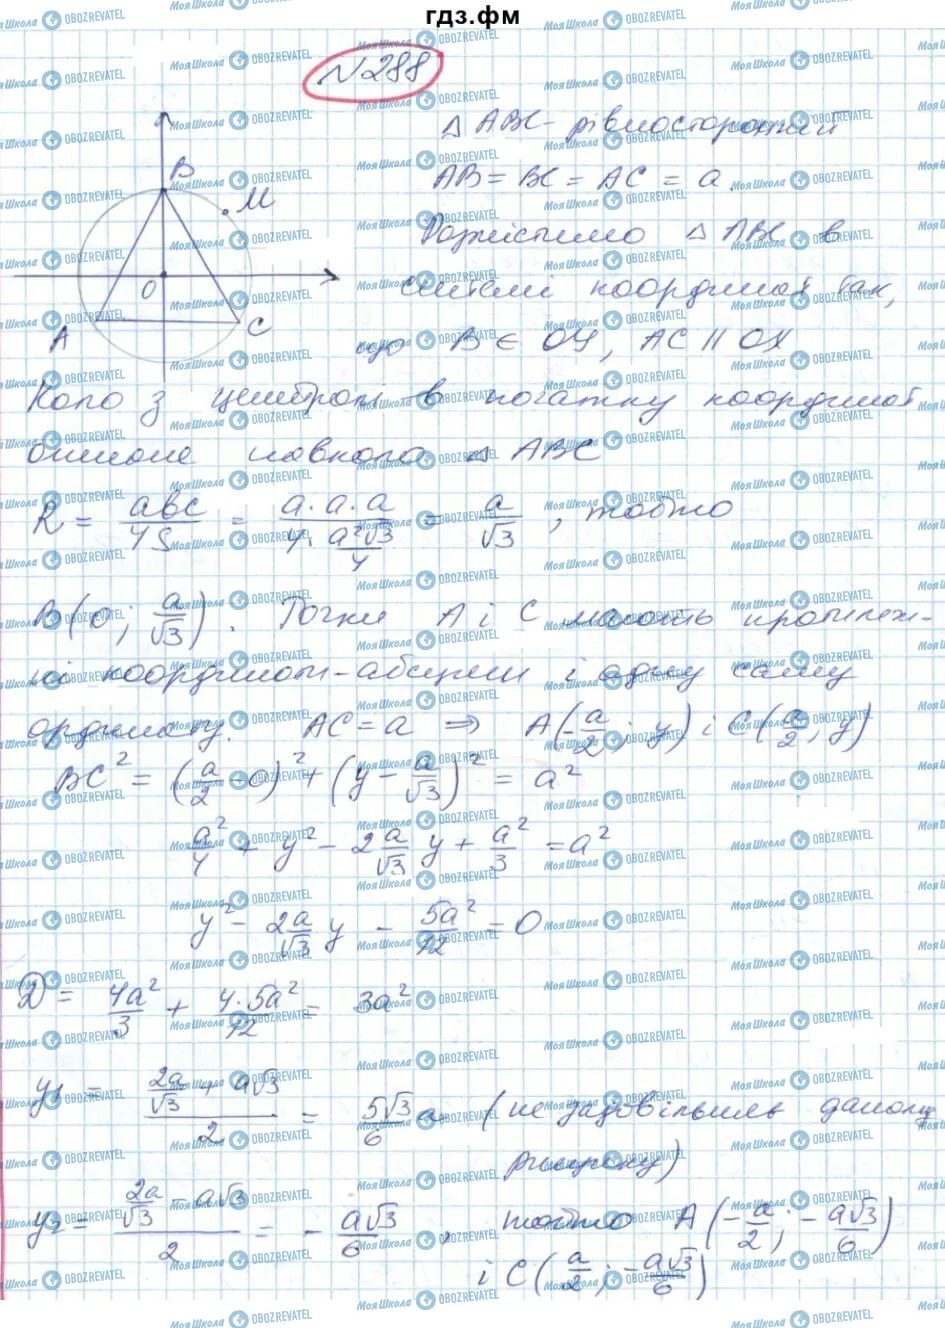 гдз.фм
N288
△ ABC - рівносторонній
AB = BC = AC = a.
Розмістимо △ ABC в
системі координат так,
що B ∈ OY, AC || OX
B
M
O
A
C
Коло з центром в початку координат
описане навколо △ ABC
R = abc/4S = a·a·a/(4·a²√3/4) = a/√3, тобто
B(0; a/√3). Точки A і C мають протилеж-
ні координати-абсциси і одну саму
ординату. AC = a ⇒ A(-a/2; y) і C(a/2; y)
BC² = (a/2 - 0)² + (y - a/√3)² = a²
a²/4 + y² - 2a/√3 y + a²/3 = a²
y² - 2a/√3 y - 5a²/12 = 0
D = 4a²/3 + 4·5a²/12 = 3a²
y₁ = (2a/√3 + a√3)/2 = 5√3/6 a (не задовільняє даному
рисунку)
y₂ = (2a/√3 - a√3)/2 = - a√3/6, тобто A(-a/2; -a√3/6)
і C(a/2; -a√3/6)
МояШкола OBOZREVATEL